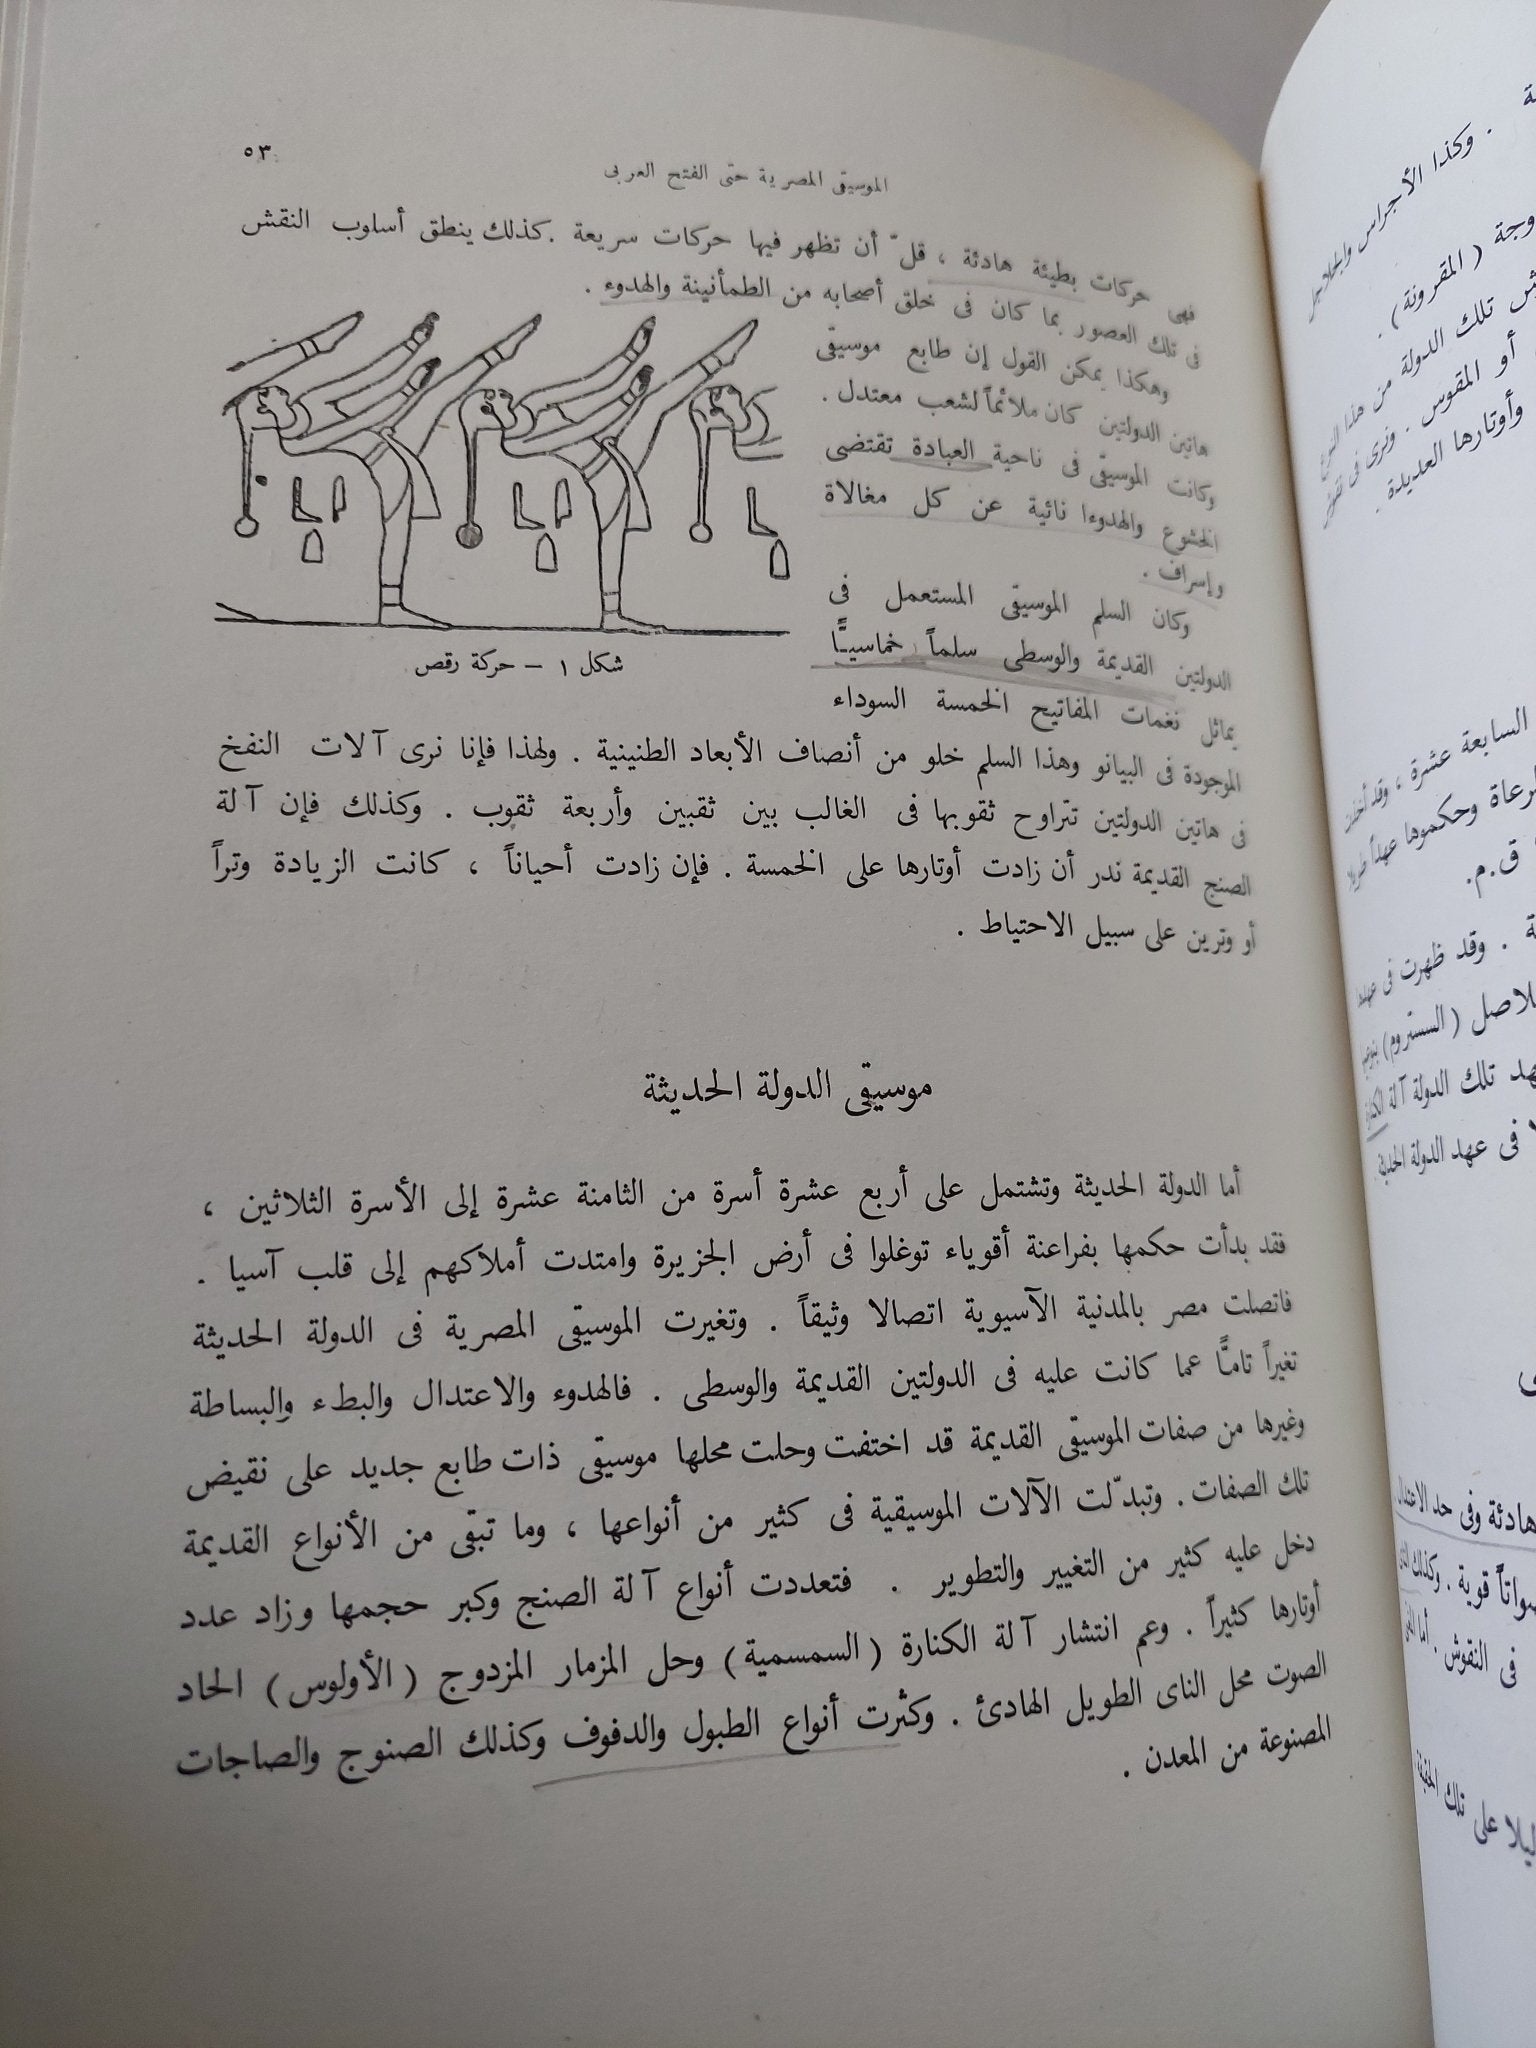 ٥٣
الموسيقى المصرية حتى الفتح العربى
فهى حركات بطيئة هادئة ، قلّ أن تظهر فيها حركات سريعة . كذلك ينطق أسلوب النقش
فى تلك العصور بما كان فى خلق أصحابه من الطمأنينة والهدوء .
وهكذا يمكن القول إن طابع موسيقى
هاتين الدولتين كان ملائماً لشعب معتدل .
وكانت الموسيقى فى ناحية العبادة تقتضى
الخشوع والهدوء نائية عن كل مغالاة
وإسراف .
وكان السلم الموسيقى المستعمل فى
الدولتين القديمة والوسطى سلماً خماسيًّا
يماثل نغمات المفاتيح الخمسة السوداء
شكل ١ – حركة رقص
الموجودة فى البيانو وهذا السلم خلو من أنصاف الأبعاد الطنينية . ولهذا فإنا نرى آلات النفخ
فى هاتين الدولتين تتراوح ثقوبها فى الغالب بين ثقبين وأربعة ثقوب . وكذلك فإن آلة
الصنج القديمة ندر أن زادت أوتارها على الخمسة . فإن زادت أحياناً ، كانت الزيادة وتراً
أو وترين على سبيل الاحتياط .
موسيقى الدولة الحديثة
أما الدولة الحديثة وتشتمل على أربع عشرة أسرة من الثامنة عشرة إلى الأسرة الثلاثين ،
فقد بدأت حكمها بفراعنة أقوياء توغلوا فى أرض الجزيرة وامتدت أملاكهم إلى قلب آسيا .
فاتصلت مصر بالمدنية الآسيوية اتصالا وثيقاً . وتغيرت الموسيقى المصرية فى الدولة الحديثة
تغيراً تامًّا عما كانت عليه فى الدولتين القديمة والوسطى . فالهدوء والاعتدال والبطء والبساطة
وغيرها من صفات الموسيقى القديمة قد اختفت وحلت محلها موسيقى ذات طابع جديد على نقيض
تلك الصفات . وتبدّلت الآلات الموسيقية فى كثير من أنواعها ، وما تبقى من الأنواع القديمة
دخل عليه كثير من التغيير والتطوير . فتعددت أنواع آلة الصنج وكبر حجمها وزاد عدد
أوتارها كثيراً . وعم انتشار آلة الكنارة (السمسمية) وحل المزمار المزدوج (الأولوس) الحاد
الصوت محل الناى الطويل الهادئ . وكثرت أنواع الطبول والدفوف وكذلك الصنوج والصاجات
المصنوعة من المعدن .
. وكذا الأجراس
(المقرونة) .
تلك الدولة من هذا النوع
أو المقوس . ونرى فى نقوش
وأوتارها العديدة .
السابعة عشرة ، وقد
وحكموها عهداً طويلا
ق.م.
. وقد ظهرت فى عهد
(السستروم)
تلك الدولة آلة
فى عهد الدولة الحديثة
هادئة وفى حد الاعتدال
قوية . وكذلك
فى النقوش . أما
على تلك